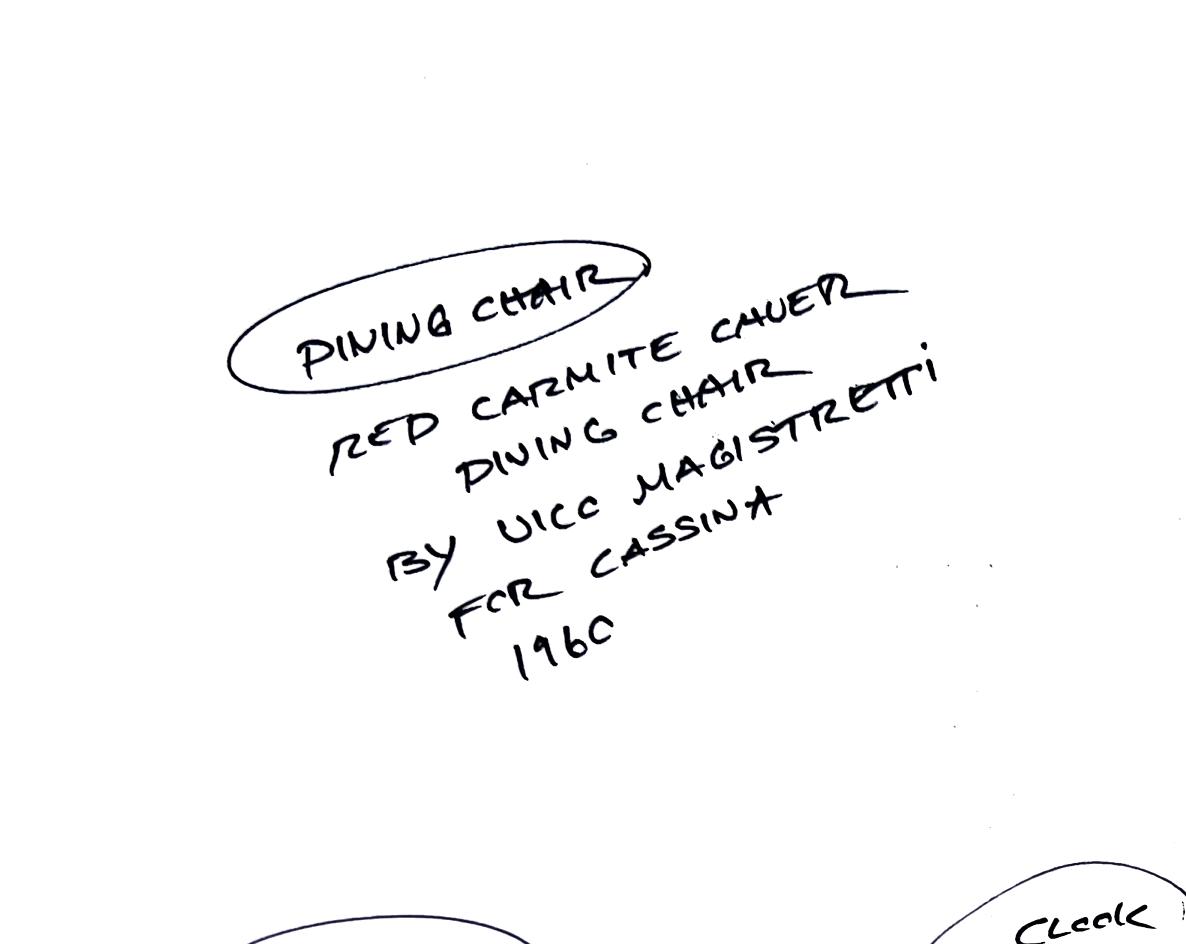 DINING CHAIR
RED CARMITE CAVER
DINING CHAIR
BY VICO MAGISTRETTI
FOR CASSINA
1960
CLOCK